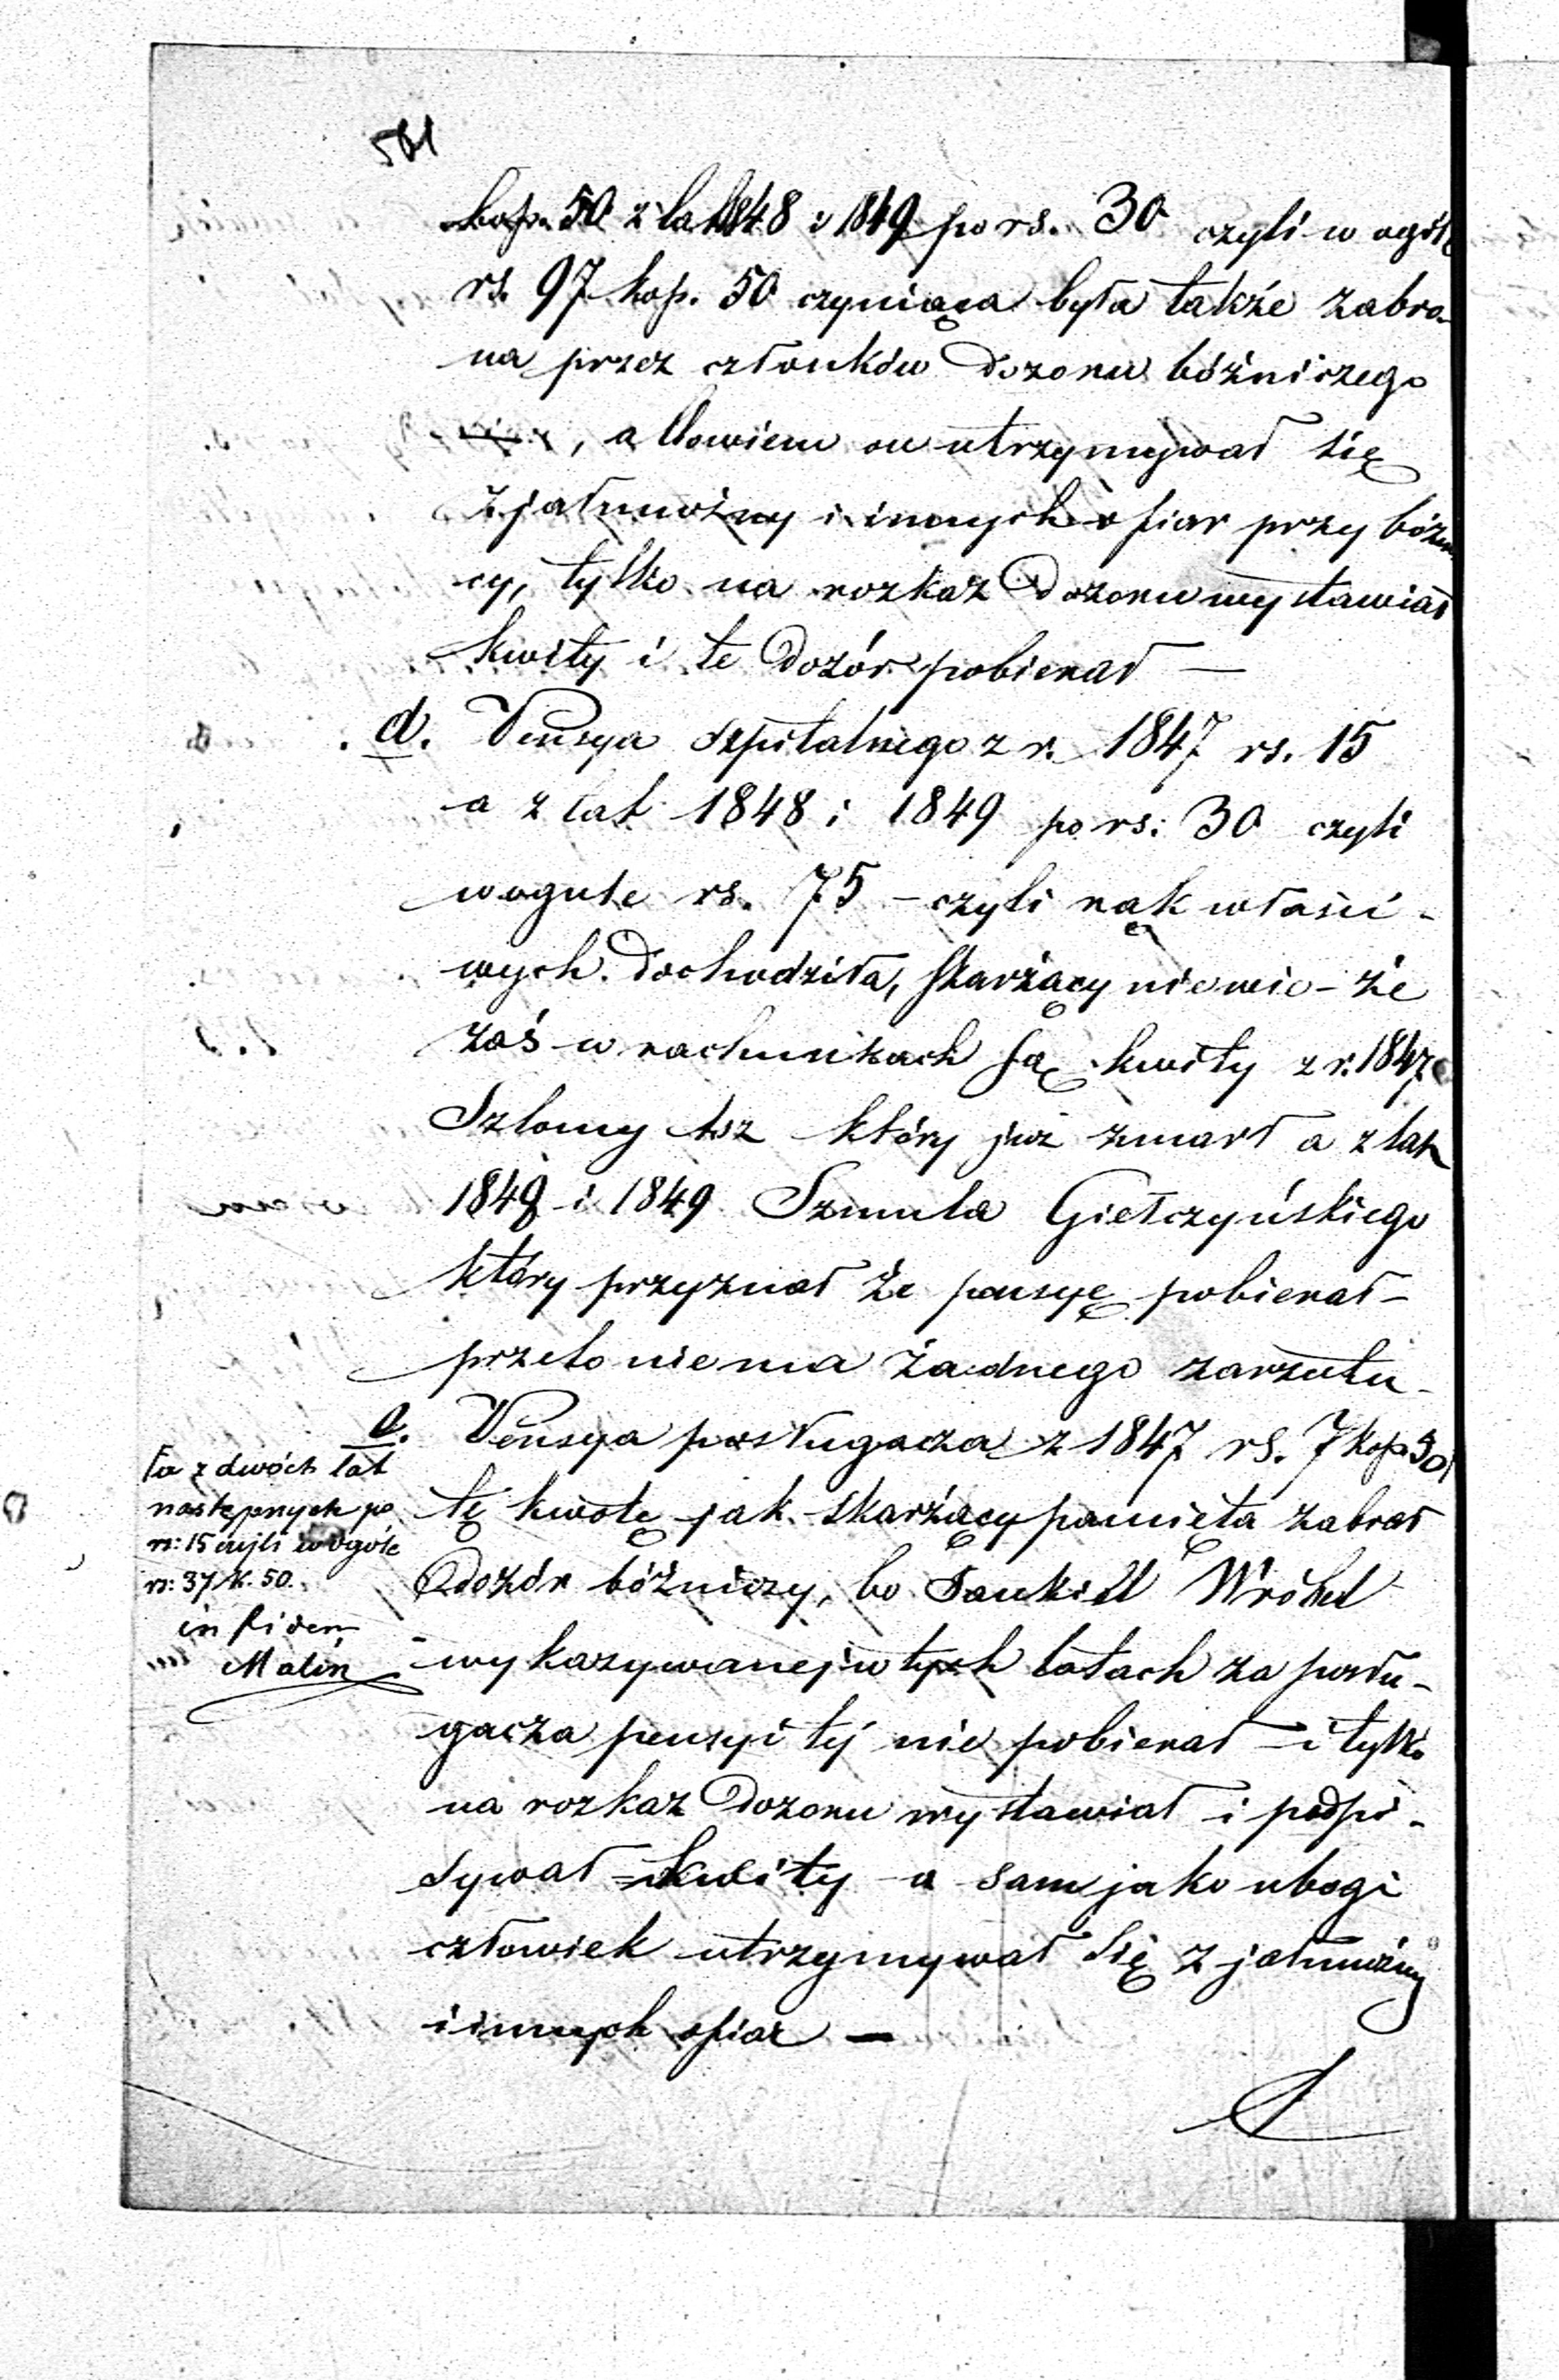 501
kop. 50 z lat 1848 i 1849 po rs. 30 czyli w ogóle
rs. 97 kop. 50 czyniąca była także zabra-
na przez członków Dozoru bóżniczego
, albowiem on utrzymywał się
z jałmużny i innych ofiar przy bóżni
cy, tylko na rozkaz Dozoru wystawiał
kwity i te Dozór pobierał —
d. Pensya szpitalnego z r. 1847 rs. 15
a z lat 1848 i 1849 po rs: 30 czyli
wogule rs. 75 — czyli rąk właści-
wych dochodziła, skarżący nie wie — że
zaś w rachunkach są kwity z r. 1847
Szlomy który już zmarł a z lat
1848 i 1849 Szmula Giełczyńskiego
który przyznał że pensyę pobierał —
przeto niema żadnego zarzutu —
e. Pensya posługacza z 1847 rs. 7 kop 50
tę kwotę jak skarżący pamięta zabrał
Dozór bóżniczy, bo Jankiel Wróbel
wykazywanej w tych latach za posłu-
gacza pensyi téj nie pobierał — i tylko
na rozkaz Dozoru wystawiał i podpi-
sywał kwity — a sam jako ubogi
człowiek utrzymywał się z jałmużny
i innych ofiar —
ta z dwóch lat
następnych po
rs: 15 czyli w ogóle
rs: 37 k. 50.
in fidem
Malin